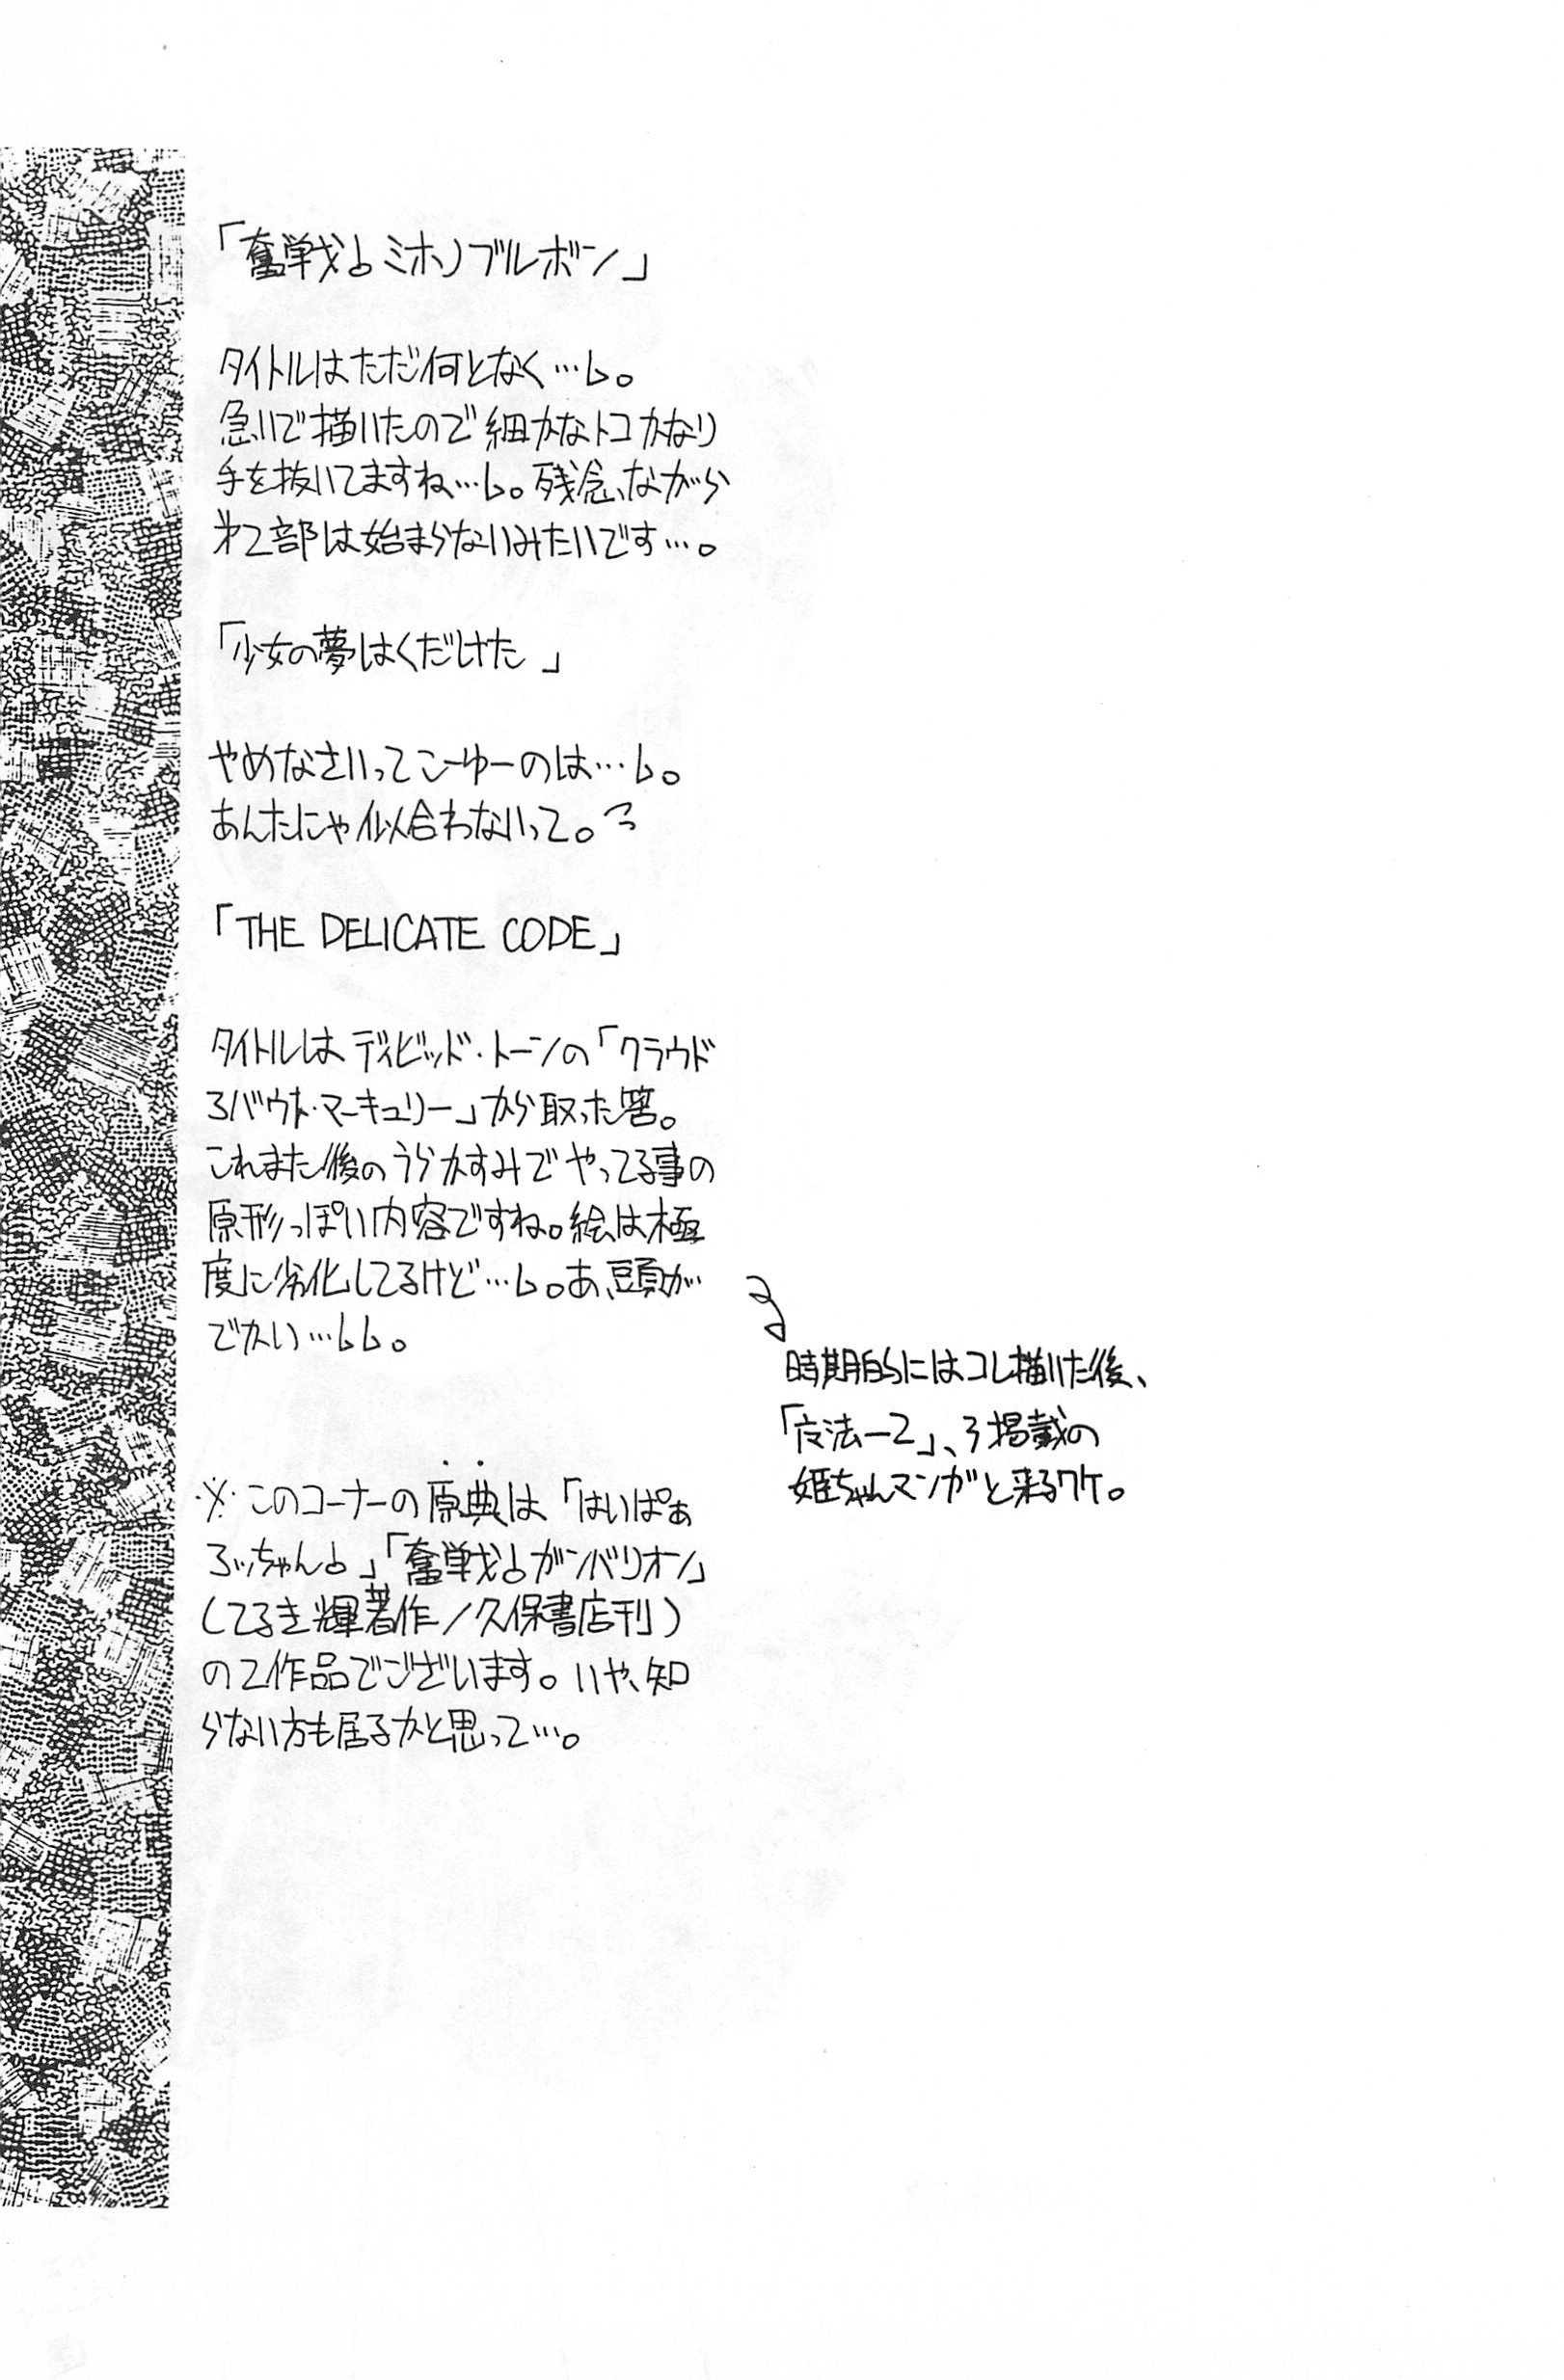 「奮戦♪ミホノブルボン」
タイトルはただ何となく…し。
急いで描いたので細かなトコかなり
手を抜いてますね…し。残念ながら
第2部は始まらないみたいです…。
「少女の夢はくだけた」
やめなさいってこーゆーのは…し。
あんたにゃ似合わないって。
「THE DELICATE CODE」
タイトルはディビッド・トーンの「クラウド
アバウト・マーキュリー」から取った筈。
これまた後のうらかすみでやってる事の
原形っぽい内容ですね。絵は極
度に劣化してるけど…し。あ、頭が
でかい…しし。
時期的にはコレ描いた後、
法-2」、3掲載の
姫ちゃんマンガと来るワケ。
※このコーナーの原典は「はいぱぁ
ろっちゃん♪」「奮戦♪ガンバリオン」
(てるき輝著作/久保書店刊)
の2作品でございます。いや、知
らない方も居るかと思って…。